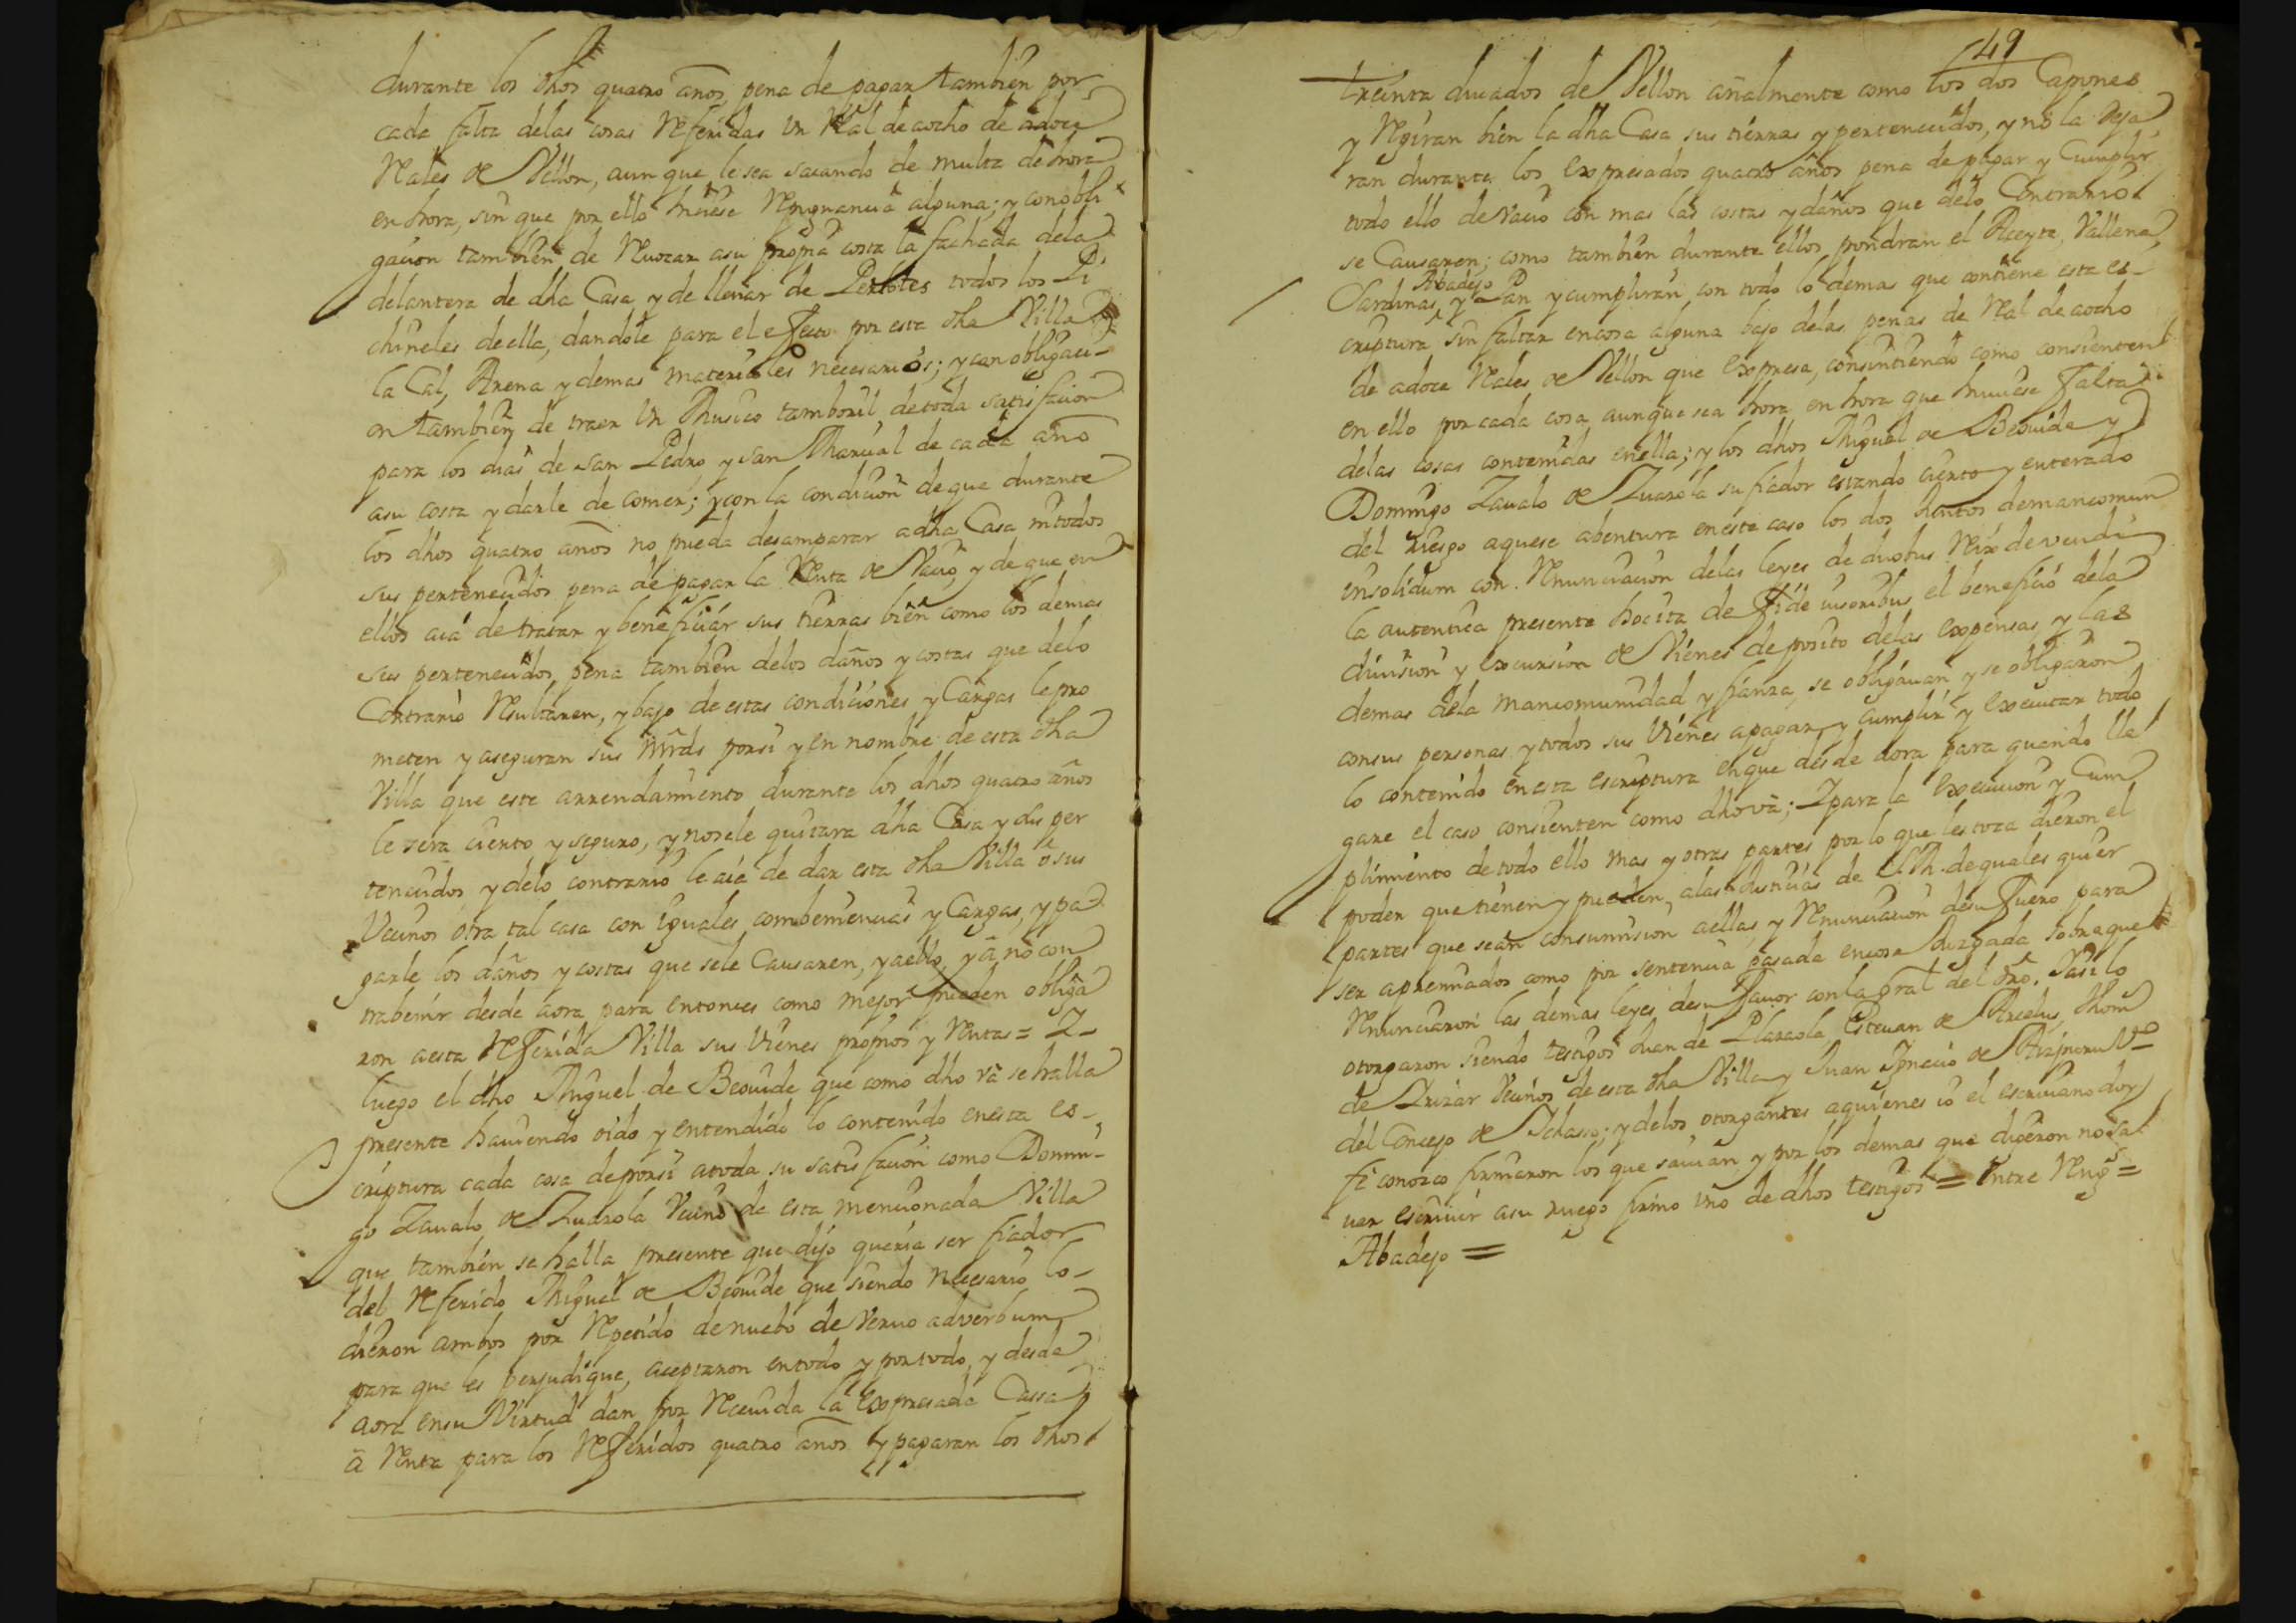 durante los dhos quatro años, pena de pagar tambien por
cada falta delas cosas Referidas Un Real de aocho de adoce
Reales de Vellon, aunque le sea sacando de multa de hora
en hora, sin que por ello huuese Repugnancia alguna; y con obli
gacion tambien de Reuocar asu propria costa la fachada dela
delantera de dha Casa y de llenar de todos los Pi
chineles deella, dandole para el efecto por esta dha Villa
la Cal, Arena y demas materiales necesarios; y con obligaci-
on tambien de traer Un Musico tamboril de toda satisfacion
para los dias de San Pedro y San Marzial de cada año
asu costa y darle de comer; y con la condicion de que durante
los dhos quatro años no pueda desamparar adha Casa ni todos
sus pertenecidos pena de pagar la Renta de Vacio, y de que en
ellos aia de tratar y beneficiar sus tierras bien como los demas
sus pertenecidos, pena tambien delos daños y costas que delo
Contrario Resultaren, y bajo de estas condiciones y Cargas le pro
meten y aseguran sus Mrds porsi y en nombre de esta dha
Villa que este arrendamiento durante los dhos quatro años
le sera cierto y seguro, y nosele quitara dha Casa y sus per
tenecidos, y delo contrario le aia de dar esta dha Villa ó sus
Vecinos otra tal casa con iguales combeniencias y Cargas, y pa
garle los daños y costas que sele Causaren, y aello, y á nó con
trabenir desde aora para entonces como mejor pueden obliga
ron aesta Referida Villa sus Vienes proprios y Rentas = Y-
luego el dho Miguel de Beouide que como dho vá se halla
presente hauiendo oido y entendido lo contenido en esta es-
criptura cada cosa deporsi atoda su satisfacion como Domin-
go Zaualo de Zuazola Vecino de esta mencionada Villa
que tambien se halla presente que dijo queria ser fiador
del Referido Miguel de Beouide que siendo necesario lo-
dieron ambos por Repetido denuebo de Veruo adverbum
para que les perjudique, aceptaron entodo y portodo, y desde
aora ensu Virtud dan por Receuida la Expresada Cassa
á Renta para los Referidos quatro años y pagaran los dhos
49
treinta ducados de Vellon añalmente como los dos Capones
y Regiran bien la dha Casa sus tierras y pertenecidos, y nó la deja
ran durante los Expresados quatro años pena de pagar y Cumplir
todo ello de vacio con mas las costas y daños que delo Contrario
se Causaren; como tambien durante ellos pondran el Aceyte, Vallena,
Abadejo
Sardinas, y Pan y cumpliran con todo lo demas que contiene esta es-
criptura sin faltar encosa alguna bajo delas penas de Real de aocho
de adoce Reales de Vellon que Expresa, consintiendo como consienten
en ello por cada cosa aunque sea hora en hora que huuiese falta
delas cosas contenidas enella; y los dhos Miguel de Beouide y
Domingo Zaualo de Zuazola su fiador estando cierto y enterado
del riesgo aquese abentura eneste caso los dos Juntos demancomun
ensolidum con Renunciacion delas leyes de duobus Reix devendi
la autentica presente hocita de fide iusoribus el beneficio dela
diuision y Excursion de Vienes deposito delas Expensas y las
demas dela mancomunidad y fianza, se obligauan y se obligaron
consus personas y todos sus Vienes apagar y cumplir y Executar todo
lo contenido enesta escriptura enque desde aora para quando lle
gare el caso consienten como dho va; Y para la Execucion y Cum
plimiento de todo ello mas y otras partes por lo que les toca dieron el
poder que tienen y pueden, alas Justicias de S.M. de quales quier
partes que sean consumision aellas, y Renunciacion desu fuero para
ser apremiados como por sentencia pasada encosa Juzgada sobre que
Renunciaron las demas leyes desu fauor con la gral del dro. Y asi lo
otorgaron siendo testigos Juan de Plazaola, Esteuan de Arcelus, thom
de Irizar Vecinos de esta dha Villa y Juan Ignacio de Vo
del Concejo de Ichasso; y delos otorgantes aquienes io el escriuano doy
fe conozco firmaron los que sauian y por los demas que dijeron nosa
uer escriuir asu ruego firmo uno de dhos testigos = Entre Reng.s =
Abadejo =